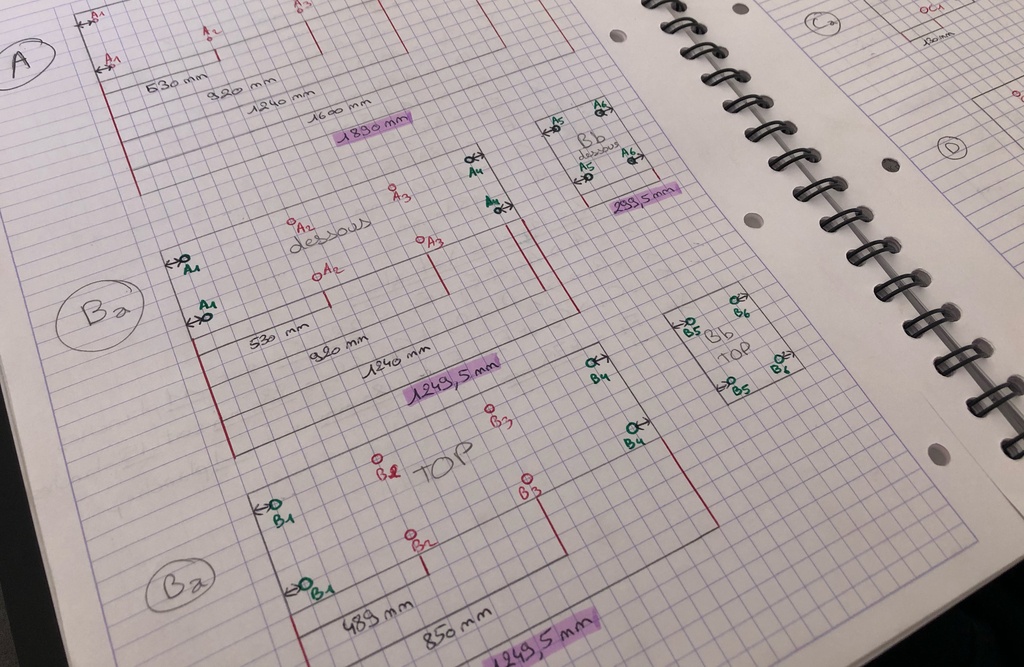 A
A1
A2
A3
A1
530 mm
920 mm
1240 mm
1600 mm
1890 mm
Ba
A1
A2
dessous
A3
A4
A1
A2
A3
A4
530 mm
920 mm
1240 mm
1249,5 mm
A5
A6
Bb
dessous
A5
A6
299,5 mm
Ba
B1
B2
TOP
B3
B4
B1
B2
B3
B4
489 mm
850 mm
1249,5 mm
B5
B6
Bb
TOP
B5
B6
OC1
D